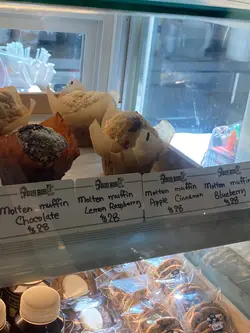 Molten muffin
Chocolate
$28
Molten muffin
Lemon Raspberry
$28
Molten muffin
Apple Cinnamon
$28
Molten muffin
Blueberry
$28